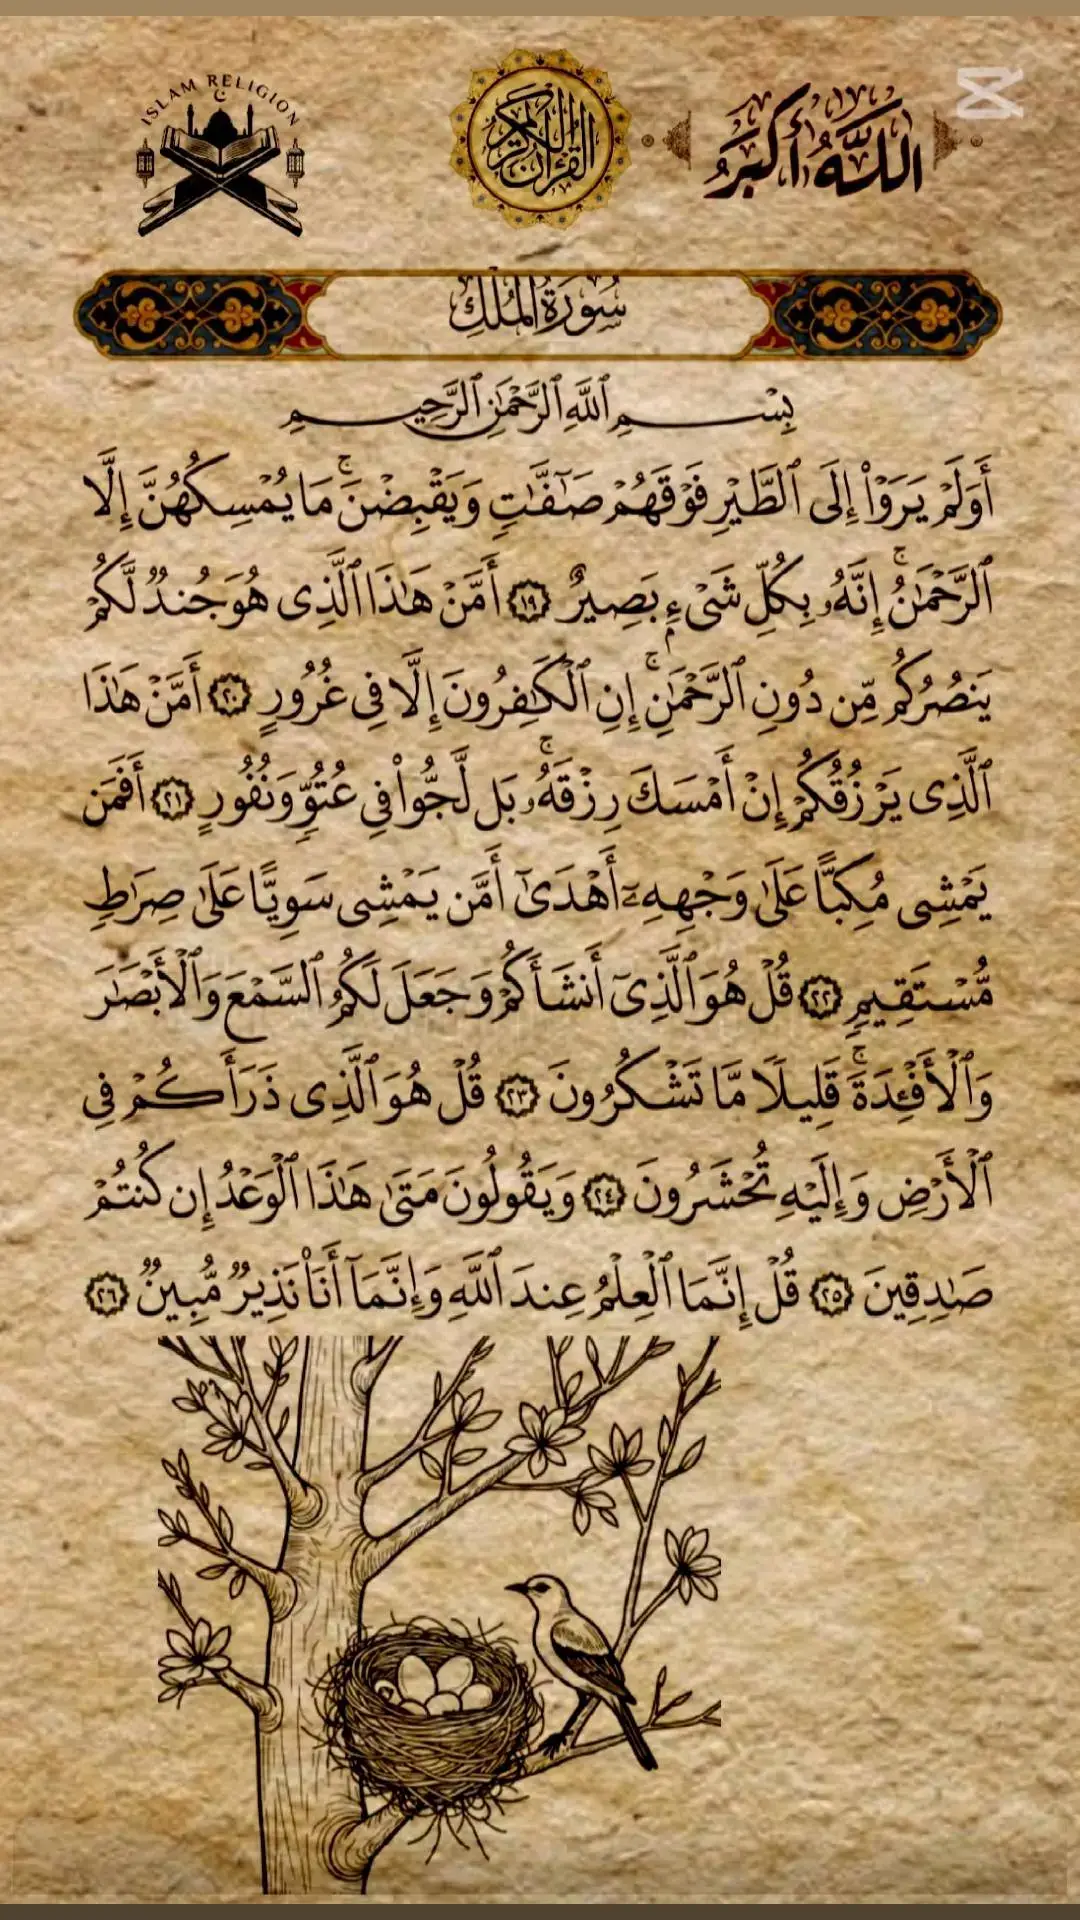 ISLAM RELIGION
القرآن الكريم
اللَّهُ أَكْبَرُ
سُورَةُ الْمُلْكِ
بِسْمِ ٱللَّهِ ٱلرَّحْمَٰنِ ٱلرَّحِيمِ
أَوَلَمْ يَرَوْا۟ إِلَى ٱلطَّيْرِ فَوْقَهُمْ صَٰٓفَّٰتٍ وَيَقْبِضْنَ ۚ مَا يُمْسِكُهُنَّ إِلَّا
ٱلرَّحْمَٰنُ ۚ إِنَّهُۥ بِكُلِّ شَىْءٍۭ بَصِيرٌ ١٩ أَمَّنْ هَٰذَا ٱلَّذِى هُوَ جُندٌ لَّكُمْ
يَنصُرُكُم مِّن دُونِ ٱلرَّحْمَٰنِ ۚ إِنِ ٱلْكَٰفِرُونَ إِلَّا فِى غُرُورٍ ٢٠ أَمَّنْ هَٰذَا
ٱلَّذِى يَرْزُقُكُمْ إِنْ أَمْسَكَ رِزْقَهُۥ ۚ بَل لَّجُّوا۟ فِى عُتُوٍّ وَنُفُورٍ ٢١ أَفَمَن
يَمْشِى مُكِبًّا عَلَىٰ وَجْهِهِۦٓ أَهْدَىٰٓ أَمَّن يَمْشِى سَوِيًّا عَلَىٰ صِرَٰطٍ
مُّسْتَقِيمٍ ٢٢ قُلْ هُوَ ٱلَّذِىٓ أَنشَأَكُمْ وَجَعَلَ لَكُمُ ٱلسَّمْعَ وَٱلْأَبْصَٰرَ
وَٱلْأَفْـِٔدَةَ ۚ قَلِيلًا مَّا تَشْكُرُونَ ٢٣ قُلْ هُوَ ٱلَّذِى ذَرَأَكُمْ فِى
ٱلْأَرْضِ وَإِلَيْهِ تُحْشَرُونَ ٢٤ وَيَقُولُونَ مَتَىٰ هَٰذَا ٱلْوَعْدُ إِن كُنتُمْ
صَٰدِقِينَ ٢٥ قُلْ إِنَّمَا ٱلْعِلْمُ عِندَ ٱللَّهِ وَإِنَّمَآ أَنَا۠ نَذِيرٌ مُّبِينٌ ٢٦